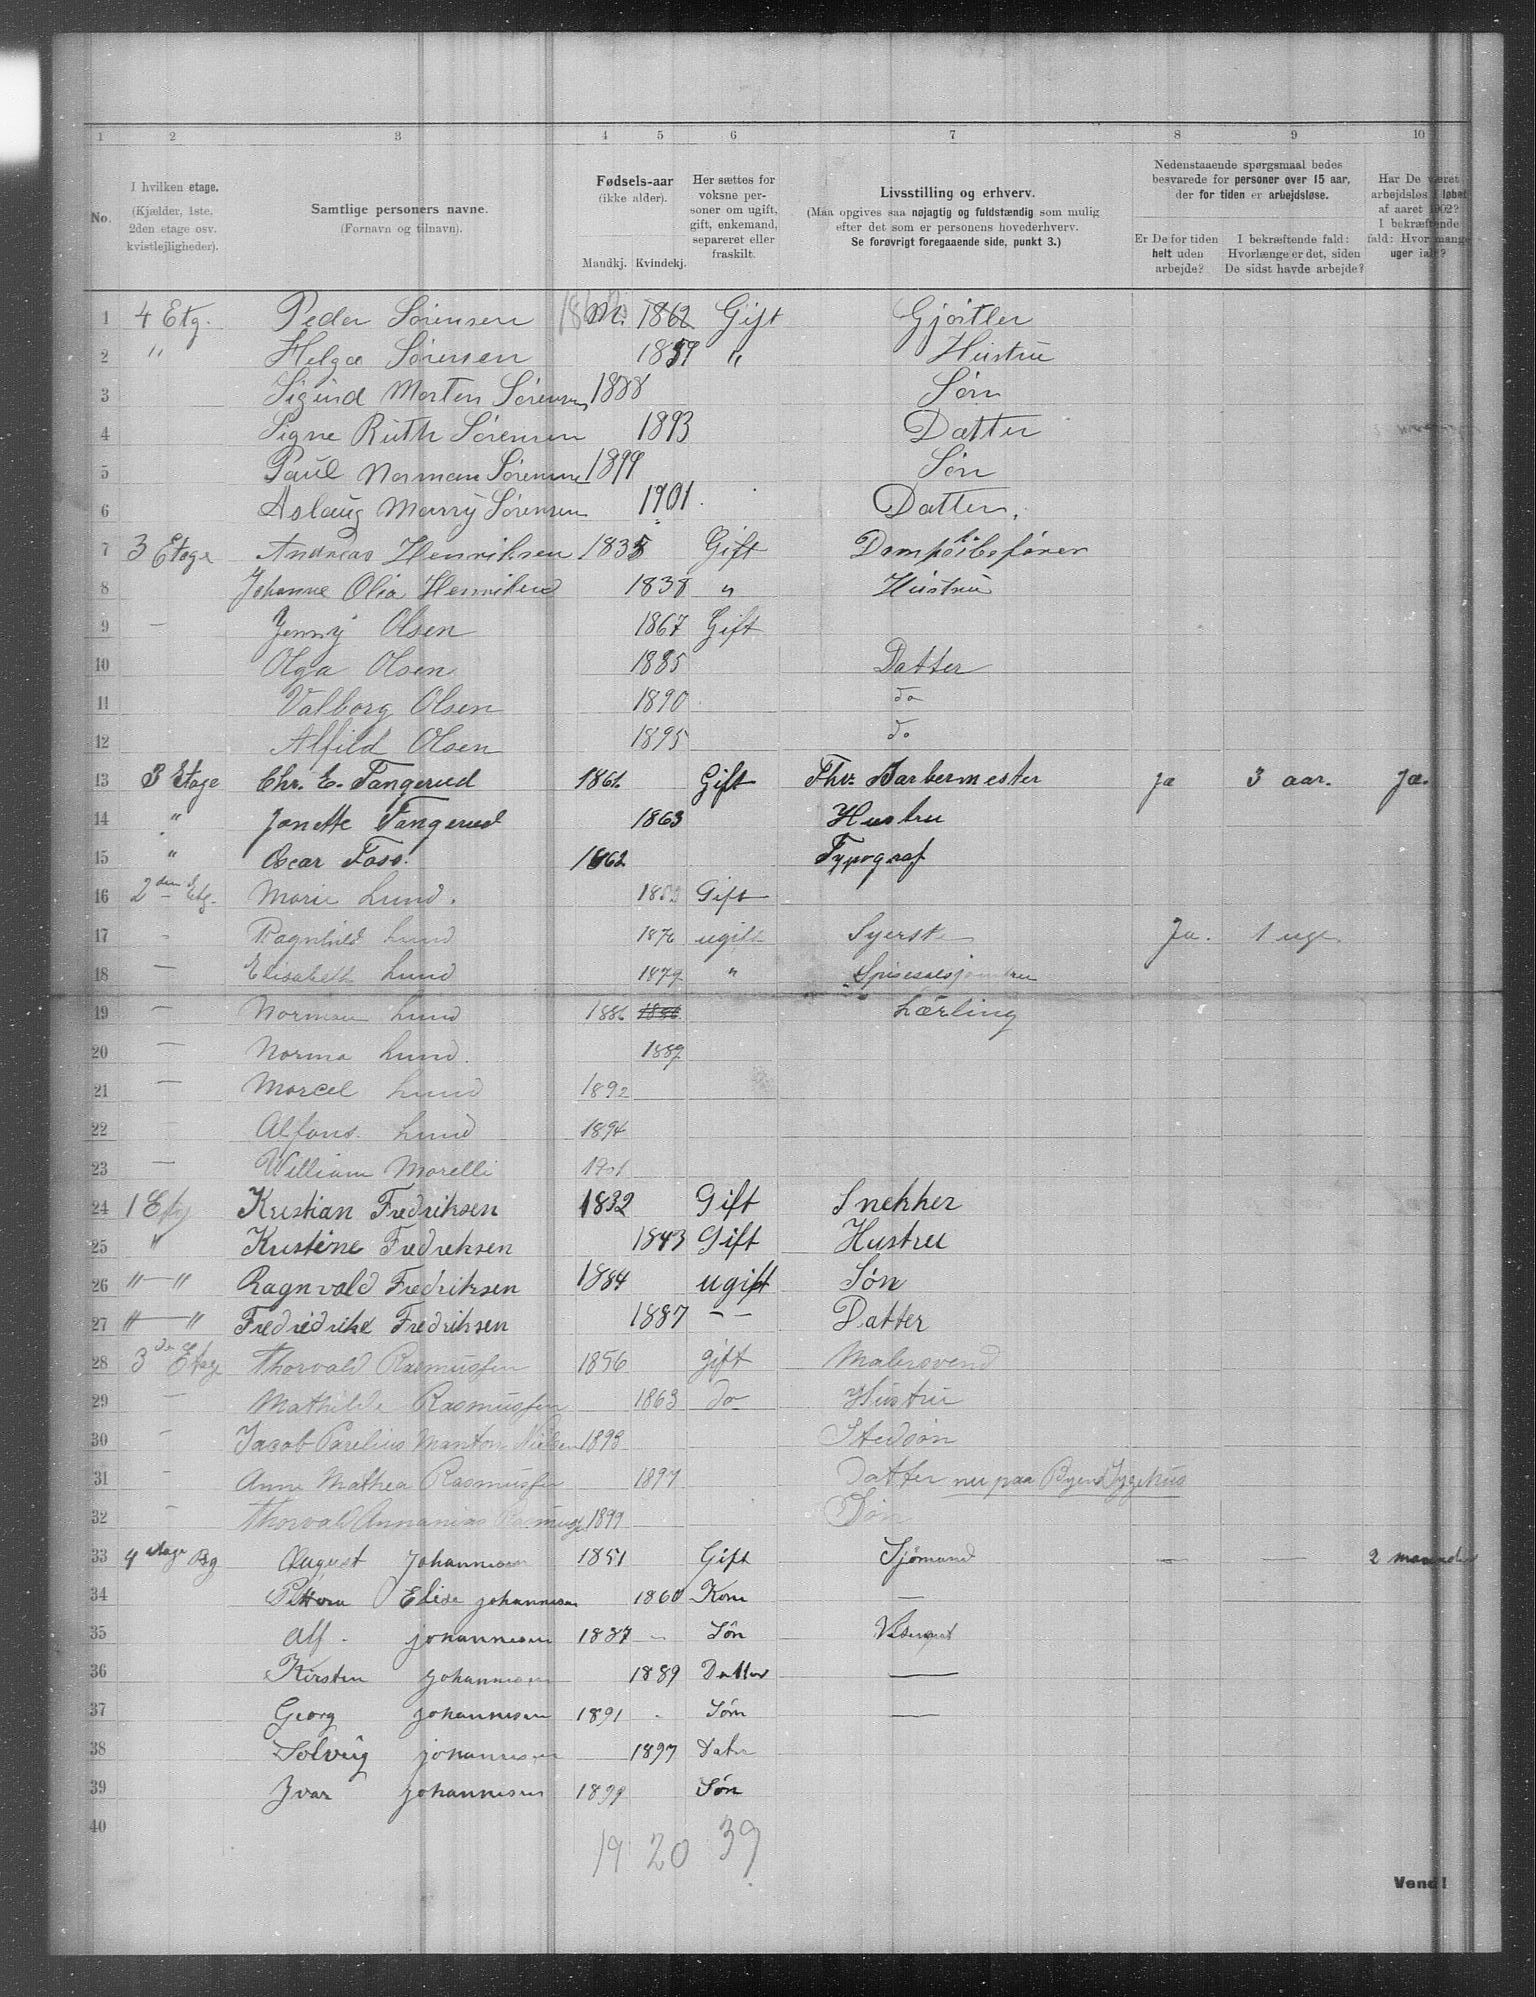 1 2 3 4 5 6 7 8 9 10
No.
I hvilken etage.
(Kjælder, 1ste, 2den etage osv. kvistlejligheder).
Samtlige personers navne.
(Fornavn og tilnavn).
Fødsels-aar
(ikke alder).
Mandkj. Kvindekj.
Her sættes for voksne personer om ugift, gift, enkemand, separeret eller fraskilt.
Livsstilling og erhverv.
(Maa opgives saa nøjagtig og fuldstændig som mulig
efter det som er personens hovederhverv.
Se forøvrigt foregaaende side, punkt 3.)
Nedenstaaende spørgsmaal bedes
besvarede for personer over 15 aar,
der for tiden er arbejdsløse.
Er De for tiden helt uden arbejde?
I bekræftende fald: Hvorlænge er det, siden De sidst havde arbejde?
Har De været arbejdsløs i løbet af aaret 1902? I bekræftende fald: Hvor mange uger ialt?
1 4 Etg. Peder Sørensen M. 1862 Gift Gjørtler
2 " Helga Sørensen 1859 " Hustru
3 Sigurd Morten Sørensen 1888 Søn
4 Signe Ruth Sørensen 1893 Datter
5 Paul Norman Sørensen 1899 Søn
6 Aslaug Marry Sørensen 1901 Datter.
7 3 Etage Andreas Henriksen 1835 Gift
8 Johanne Olia Henriksen 1838 " Hustru
9 - Jenny Olsen 1867 Gift
10 Olga Olsen 1885 Datter
11 Valborg Olsen 1890 do
12 Alfild Olsen 1895 do
13 3 Etage Chr. E. Tangerud 1861 Gift Fhv. Barbermester Ja 3 aar. Ja.
14 " Janette Tangerud 1863 Hustru
15 " Oscar Foss. 1862 Typograf
16 2den Etg. Marie Lund. Gift
17 - Ragnhild Lund 1876 ugift Syerske Ja. 1 uge
18 - Elisabeth Lund 1879 " Spisesalsjomfru
19 - Norman Lund 1886 1886 Lærling
20 - Norma Lund. 1889
21 - Marcel Lund 1892
22 - Alfons Lund 1894
23 - William Morelli 1901
24 1 Etg Kristian Fredriksen 1832 Gift Snekker
25 " Kristine Fredreksen 1843 Gift Hustru
26 " — " Ragnvald Fredriksen 1884 ugift Søn
27 " — " Fredridrike Fredriksen 1887 - - Datter
28 3die Etage Thorvald Rasmussen 1856 gift Malersvend
29 - Mathilde Rasmussen 1863 do Hustru
30 - Jacob Parelius Manton Nielsen 1893 Stedsøn
31 - Anne Mathea Rasmussen 1897 Datter nu paa Byens Sygehus
32 - Thorvald Annanias Rasmuss 1899 Søn
33 4 etage Bg August Johannesen 1851 Gift Sjømand — — 2 maaneder
34 Elise johannesen 1860 Kone —
35 Alf - johannesen 1887 - Søn
36 Kirsten johannesen 1889 Datter —
37 Georg johannesen 1891 - Søn —
38 Solveig johannesen 1897 Dater
39 Ivar johannesen 1899 Søn
40
19 20 39
Vend!